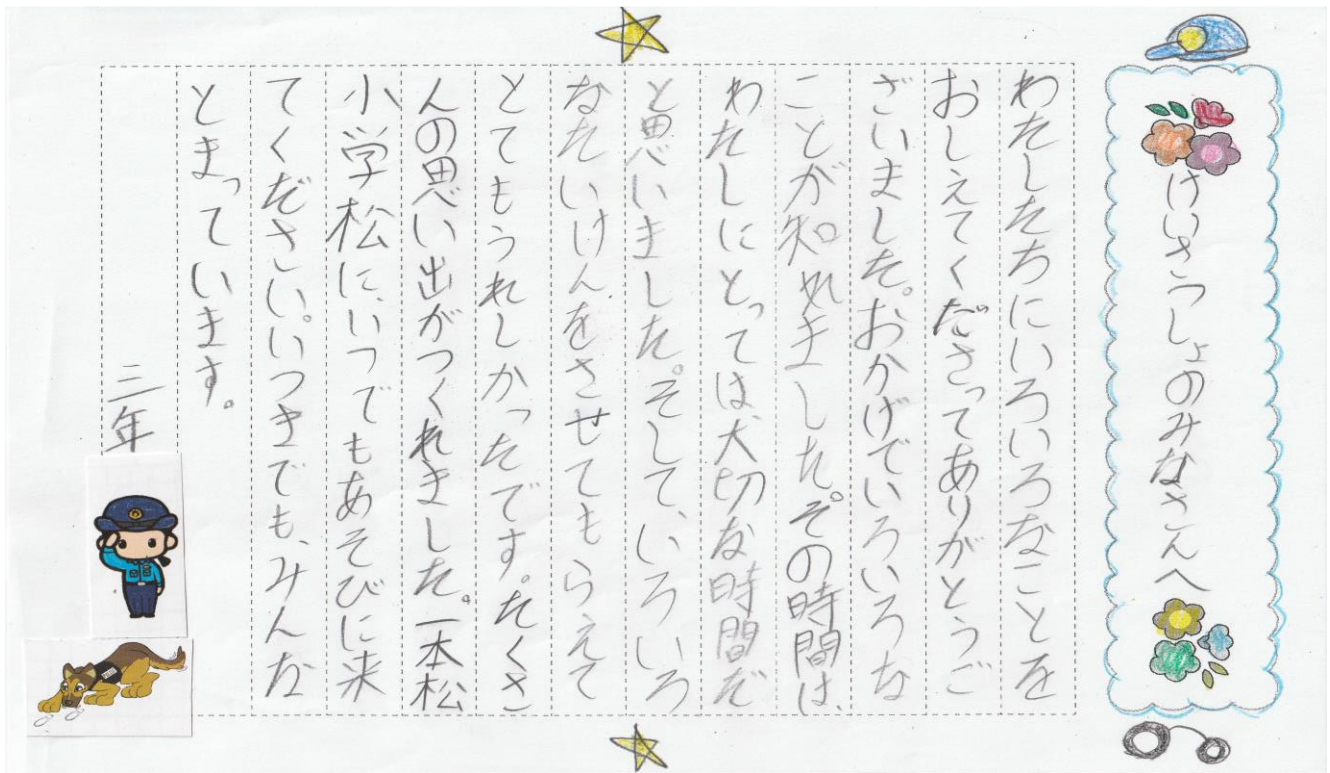 けいさつしょのみなさんへ
わたしたちにいろいろなことを
おしえてくださってありがとうご
ざいました。おかげでいろいろな
ことが知れました。その時間は、
わたしにとっては、大切な時間だ
と思いました。そして、いろいろ
なたいけんをさせてもらえて
とてもうれしかったです。たくさ
んの思い出がつくれました。一本松
小学松に、いつでもあそびに来
てください。いつまでも、みんな
とまっています。
三年